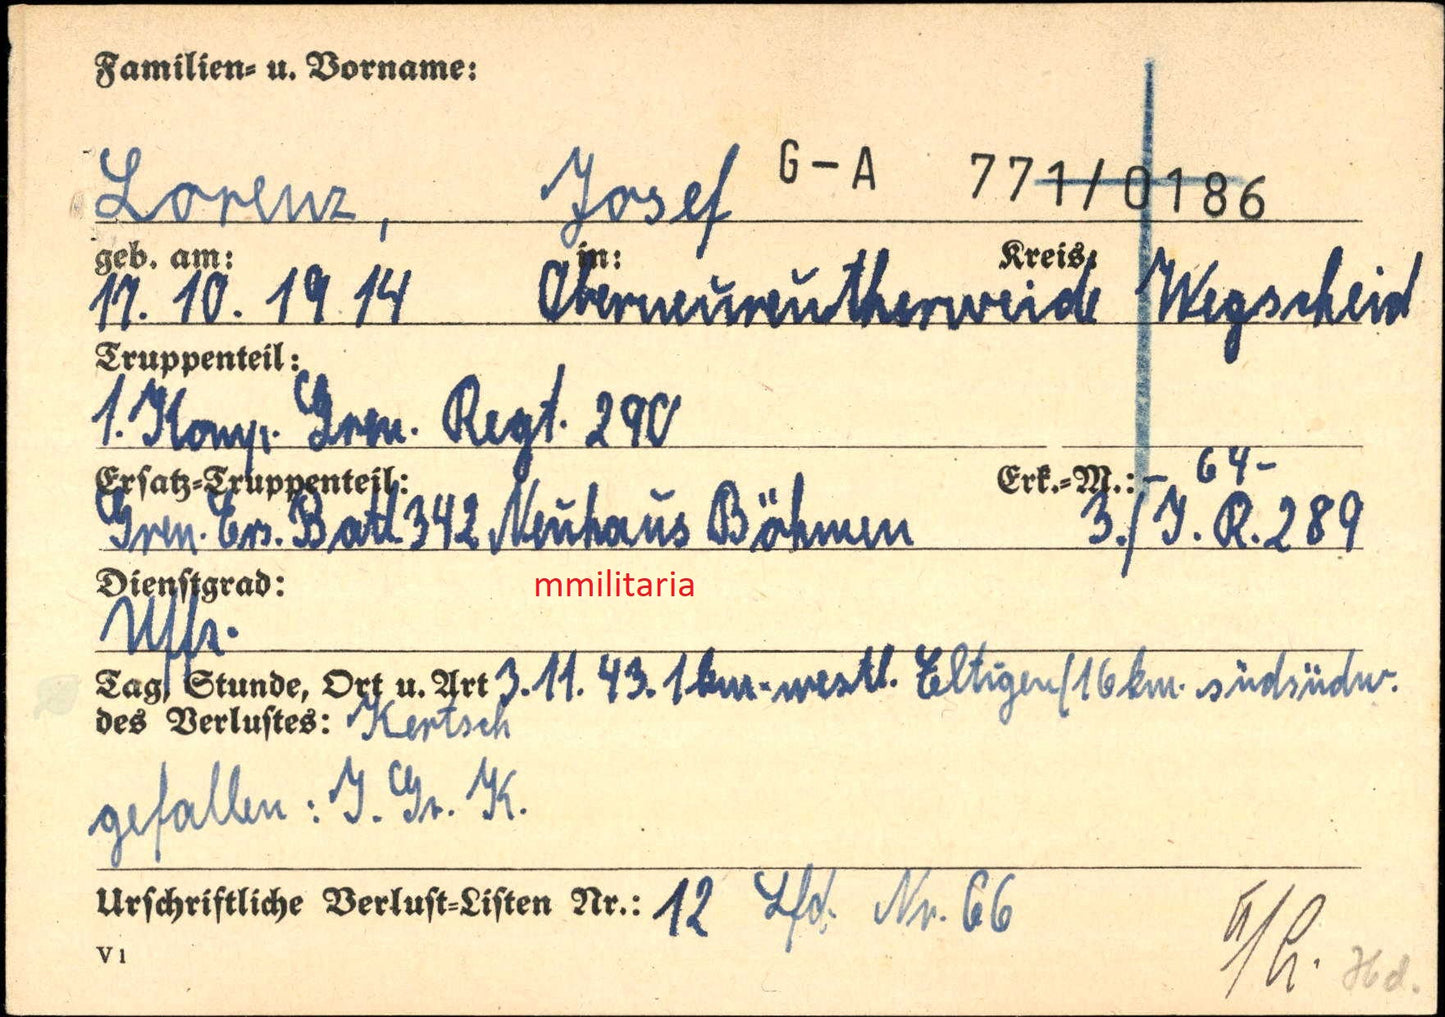 Familien- u. Vorname:
Lorenz, Josef G-A 771/0186
geb. am: in: Kreis:
17. 10. 1914 Oberneureutherwaide Wegscheid
Truppenteil:
1. Komp. Gren. Regt. 290
Ersatz-Truppenteil: Erk.-M.: -64-
Gren. Ers. Batl. 342 Neuhaus Böhmen 3./J.R. 289
Dienstgrad:
mmilitaria
Uffz.
Tag, Stunde, Ort u. Art 3.11.43. 1 km. westl. Eltigen/16 km. südsüdw.
des Verlustes: Kertsch
gefallen: J. Gr. K.
Urschriftliche Verlust-Listen Nr.: 12 Lfd. Nr. 66
V 1